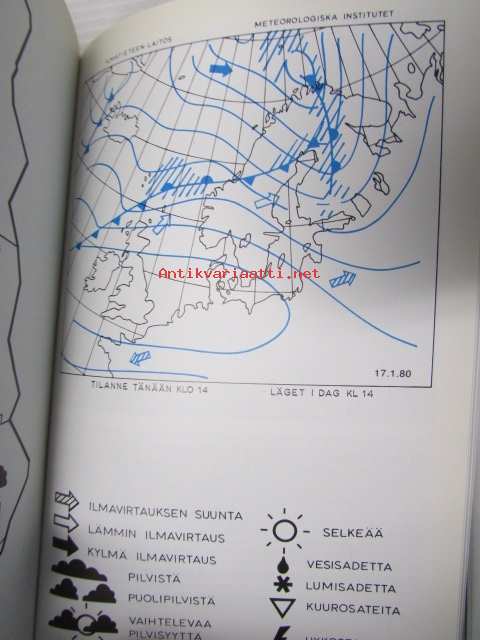 ILMATIETEEN LAITOS
METEOROLOGISKA INSTITUTET
Antikvariaatti.net
17.1.80
TILANNE TÄNÄÄN KLO 14
LÄGET I DAG KL 14
ILMAVIRTAUKSEN SUUNTA
LÄMMIN ILMAVIRTAUS
KYLMÄ ILMAVIRTAUS
PILVISTÄ
PUOLIPILVISTÄ
VAIHTELEVAA
PILVISYYTTÄ
SELKEÄÄ
VESISADETTA
LUMISADETTA
KUUROSATEITA